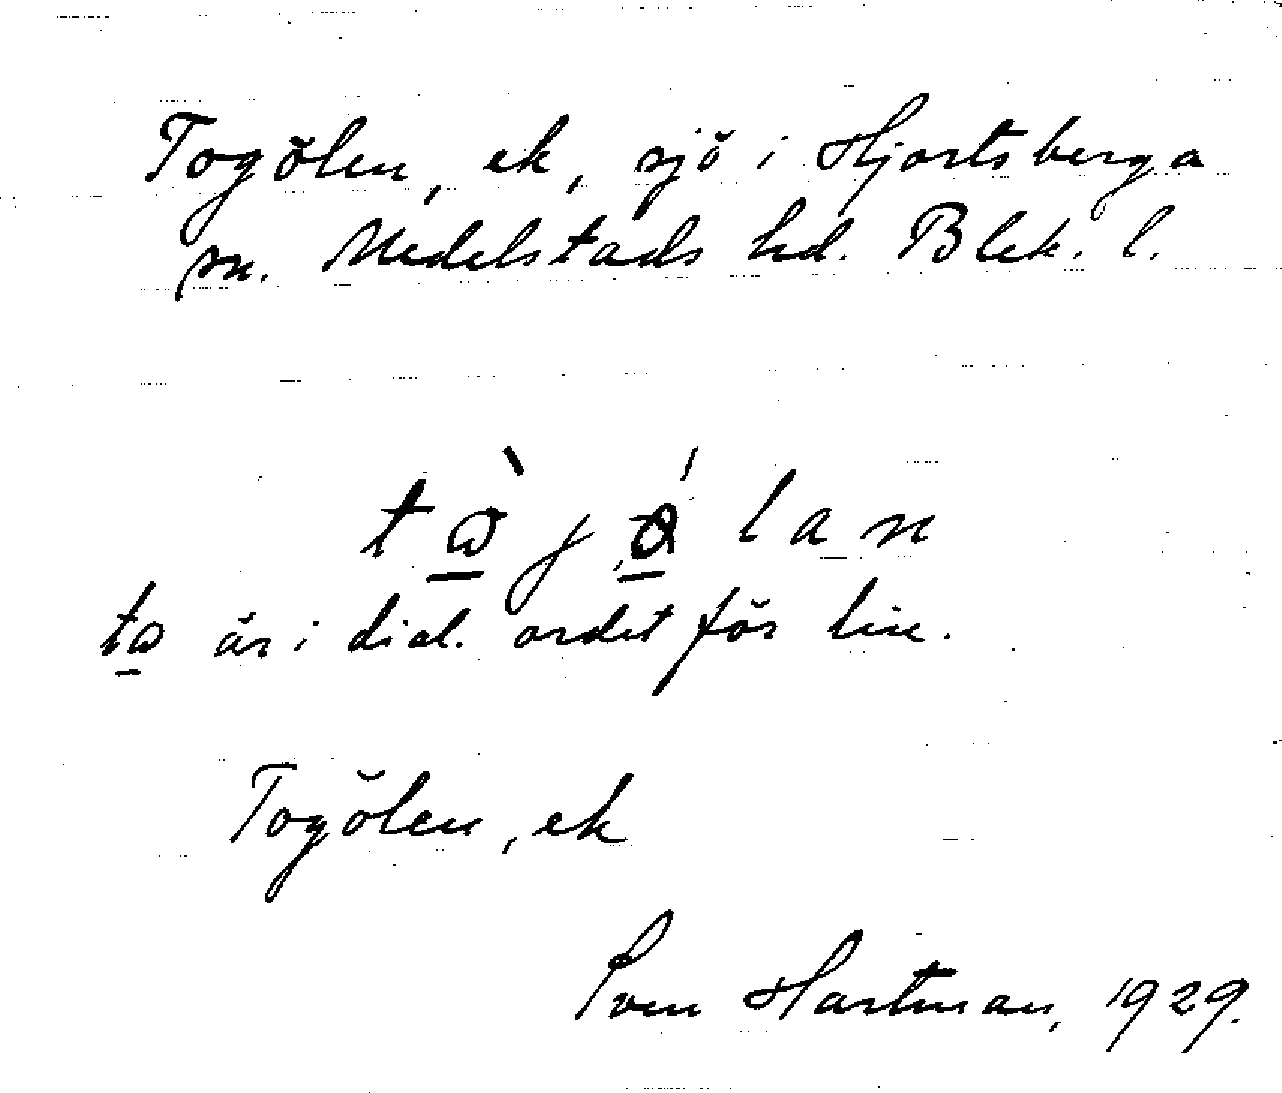 Togölen, ek, sjö i Hjortsberga
sn. Medelstads hd. Blek. l.
to är i dial. ordet för
Togölen, ek
Sven Hartman, 1929.